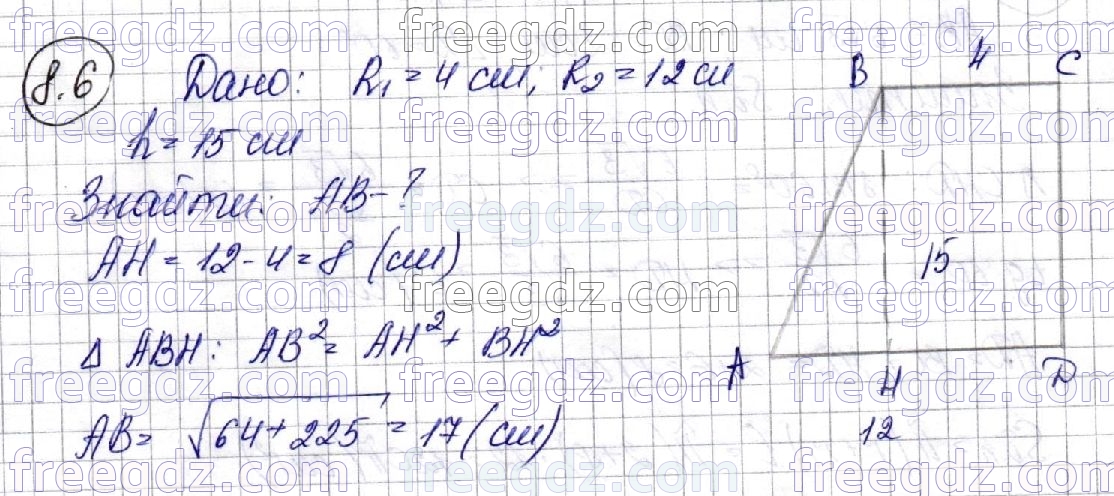 8.6 Дано: R₁ = 4 см; R₂ = 12 см
h = 15 см
Знайти: AB - ?
AH = 12 - 4 = 8 (см)
Δ ABH: AB² = AH² + BH²
AB = √64 + 225 = 17 (см)
B 4 C
15
A H D
12
freegdz.com